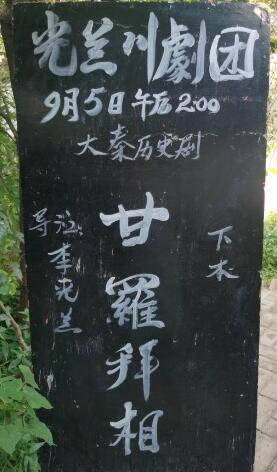 光兰川劇团
9月5日午后2:00
大秦历史剧
甘羅拜相
下本
导演:李光兰